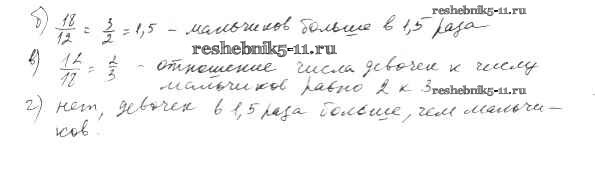 reshebnik5-11.ru
б) 18/12 = 3/2 = 1,5 - мальчиков больше в 1,5 раза
reshebnik5-11.ru
в) 12/18 = 2/3 - отношение числа девочек к числу
мальчиков равно 2 к 3
reshebnik5-11.ru
г) нет, девочек в 1,5 раза больше, чем мальчи-
ков.